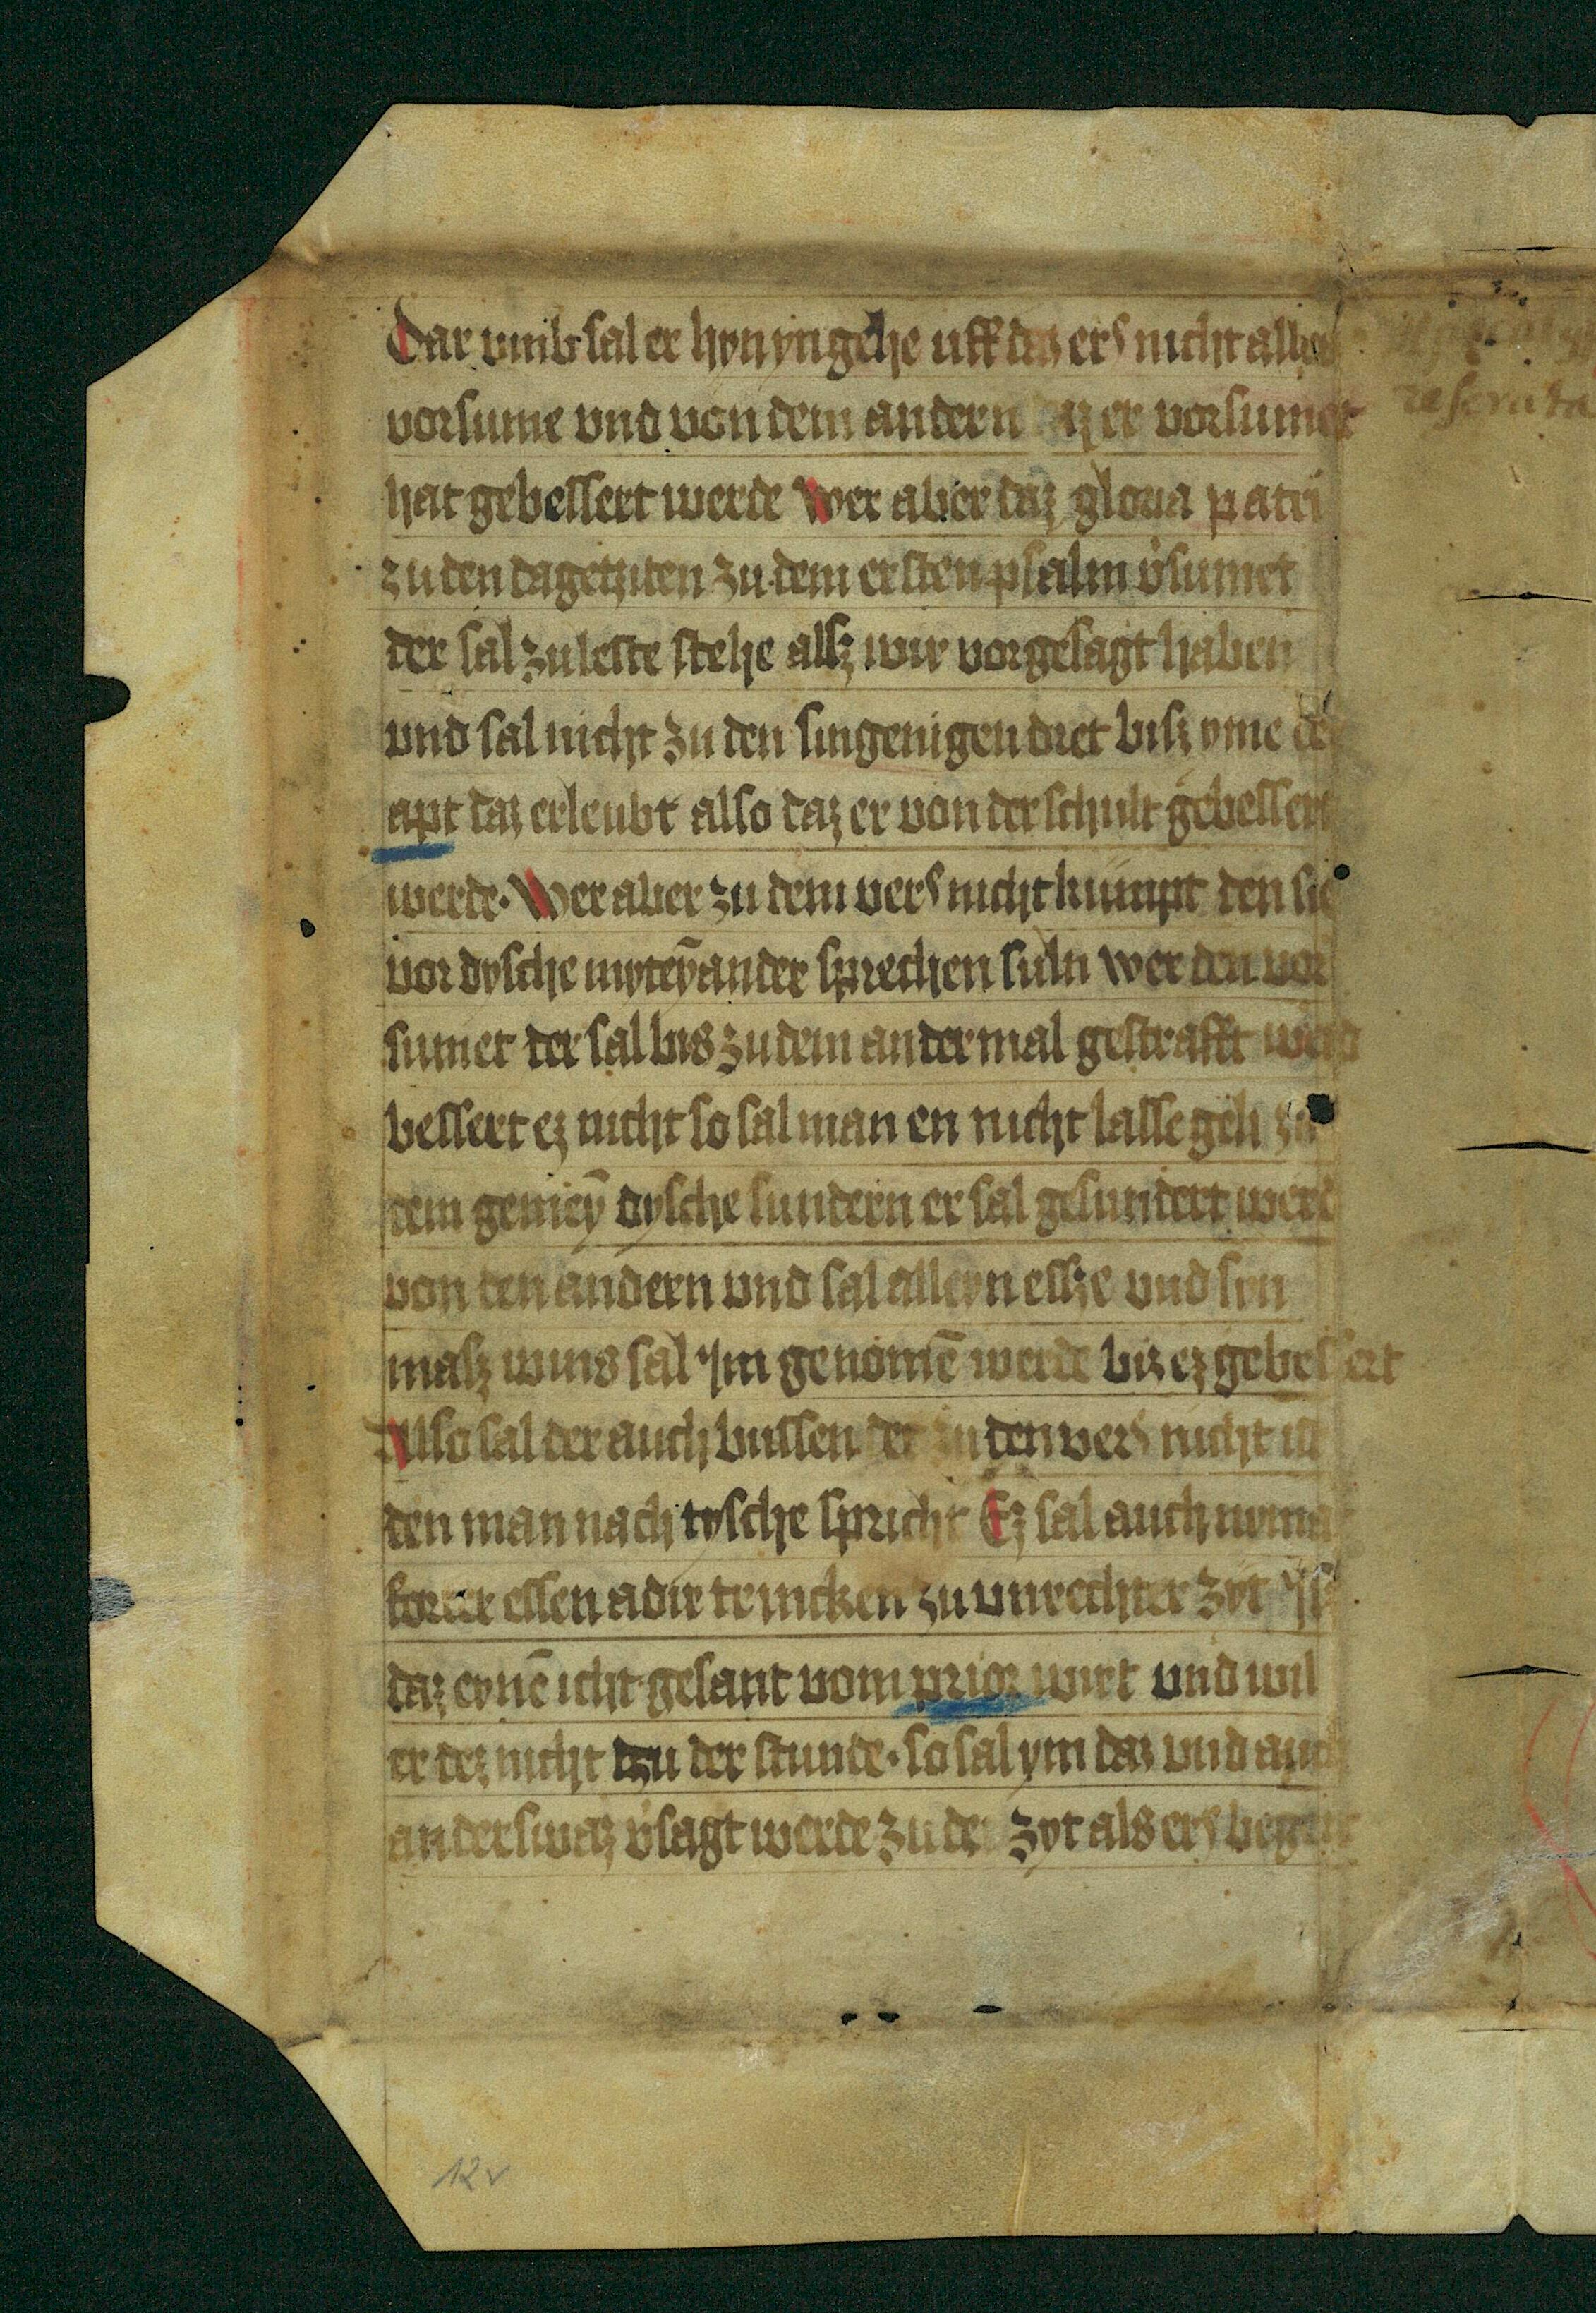 Dar vmb sal er hyn yn gehe uff daz ers nicht alles
vorsume vnd von dem andern daz er vorsumet
hat gebessert werde Wer aber daz gloria patri
zu den dagetziten zu dem ersten psalm v̓sumet
der sal zuleste stehe alsz wir vorgesagt haben
vnd sal nicht zu den singenigen dret bisz yme der
apt daz erleubt also daz er von der schult gebessert
werde. Wer aber zu dem vers nicht kumpt den sie
vor dysche myteȳander sprechen suln wer den vor
sumet der sal bis zu dem ander mal gestrafft werd
bessert ez nicht so sal man en nicht lasse geh zu
dem gemeȳ dysche sundern er sal gesundert werd
von den andern vnd sal alleyn essze vnd syn
masz wins sal ym genomē werde biz ez gebessert
Also sal der auch bussen der zu den vers nicht ist
den man nach tysche spricht Ez sal auch nyma
forter essen adir trincken zu vnrechter zyt ysz
daz eynē icht gesant vom prior wirt vnd wil
er dez nicht tzu der stunde. so sal ym daz vnd auch
anderswaz v̓sagt werde zu der zyt als ers begert
reserata
12v